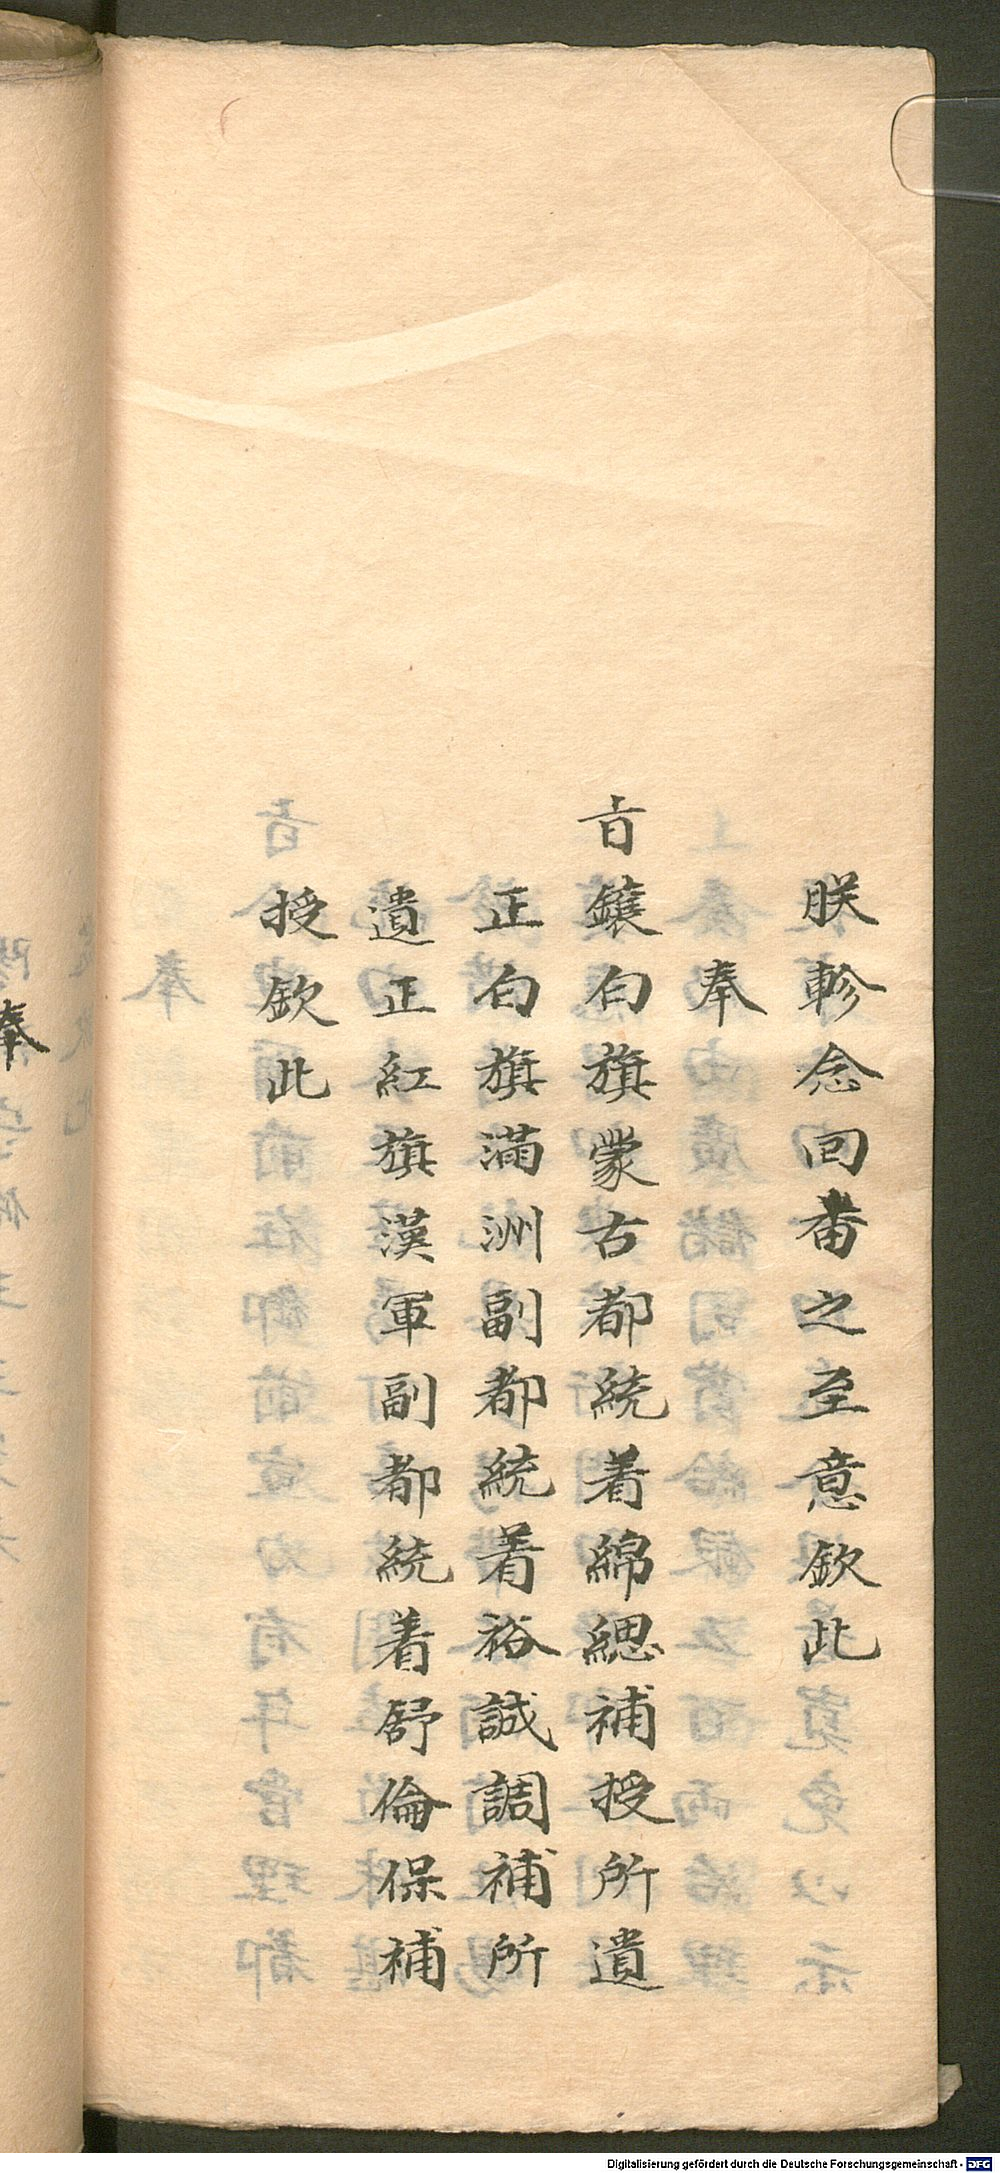 朕軫念回番之至意欽此
奉
旨鑲白旗蒙古都統着綿緦補授所遺
正白旗滿洲副都統着裕誠調補所
遺正紅旗漢軍副都統着舒倫保補
授欽此
奉
Digitalisierung gefördert durch die Deutsche Forschungsgemeinschaft - DFG